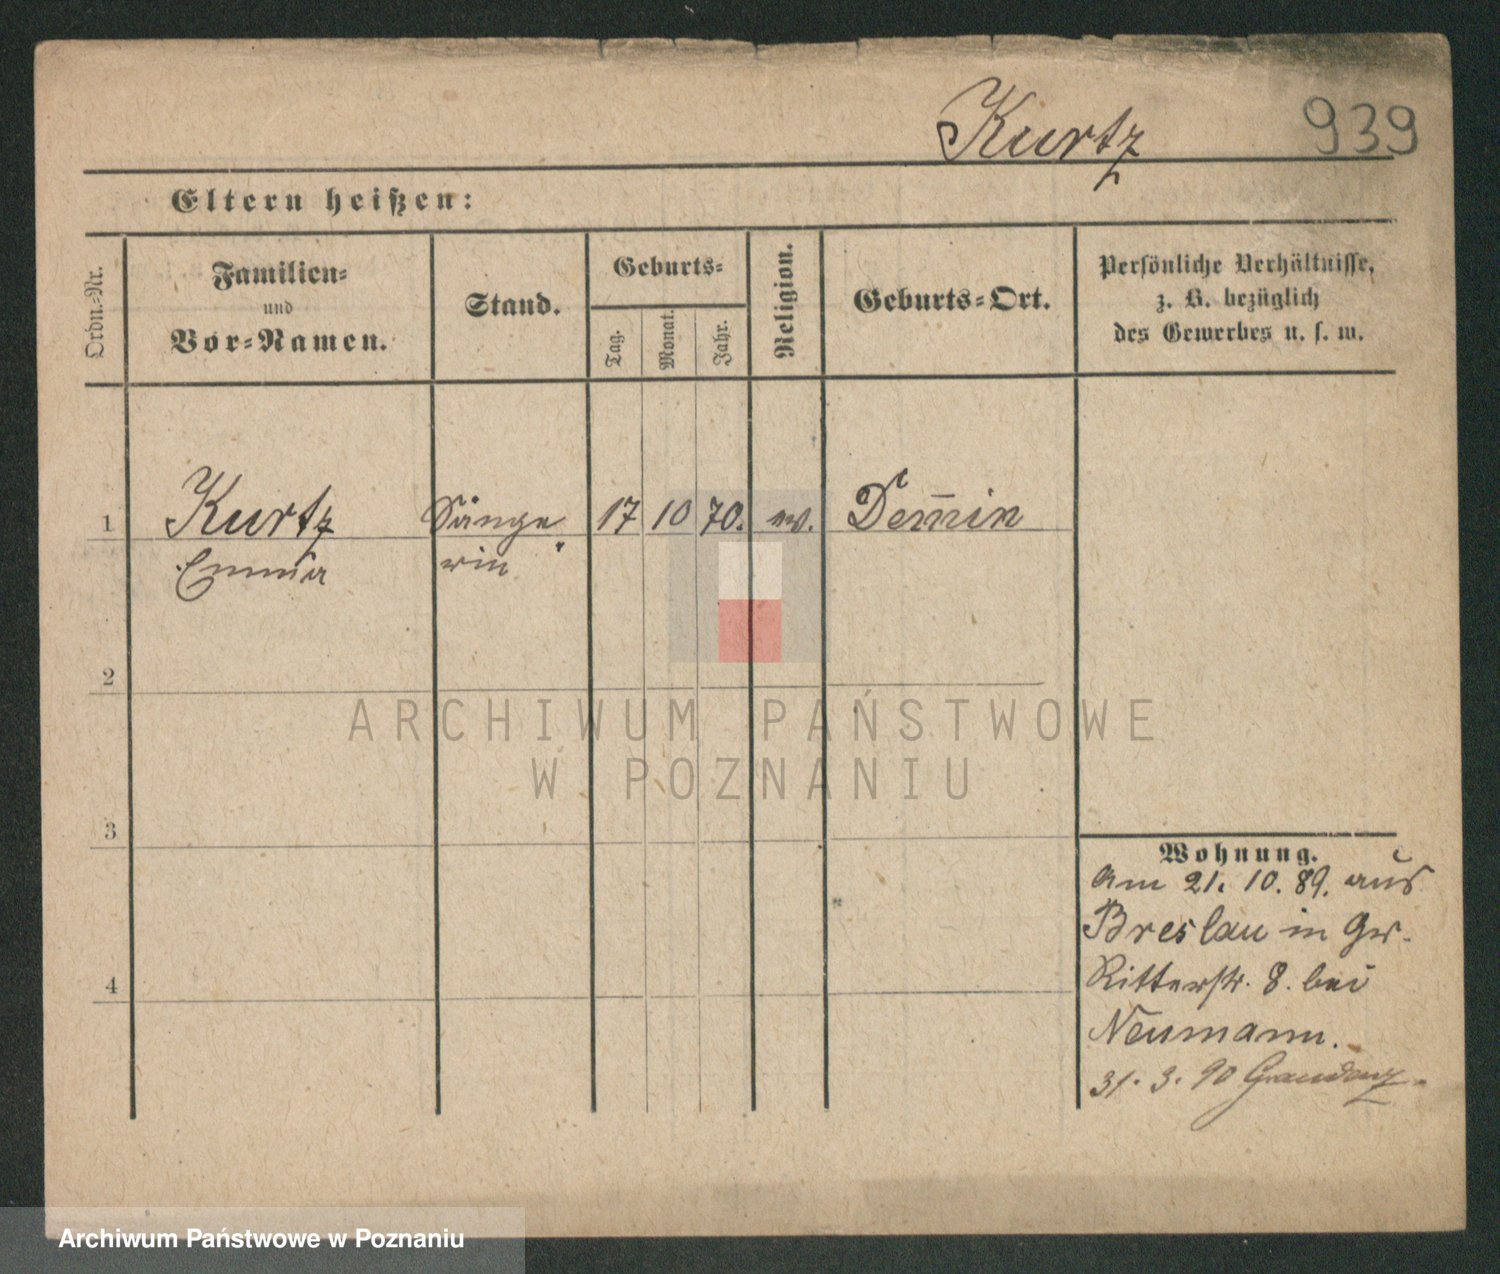 Kurtz 939
Eltern heißen:
Ordn.-Nr.
Familien-
und
Vor-Namen.
Stand.
Geburts-
Tag.
Monat.
Jahr.
Religion.
Geburts-Ort.
Persönliche Verhältnisse,
z. B. bezüglich
des Gewerbes u. s. w.
1 Kurtz Sänge 17 10 70. ev. Dem̅in
Emma rin
2
ARCHIWUM PAŃSTWOWE
W POZNANIU
3
Wohnung.
Am 21. 10. 89. aus
Breslau in Gr.
Ritterstr. 8. bei
Neumann.
4
31. 3. 90 Graudenz
Archiwum Państwowe w Poznaniu